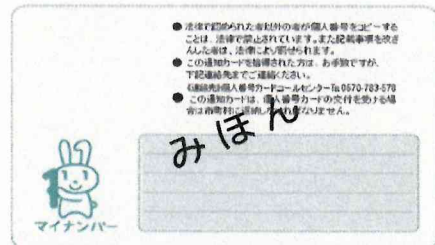 ● 法律で認められた者以外の者が個人番号をコピーする
ことは、法律で禁止されています。また記載事項を改ざ
んした者は、法律により罰せられます。
● この通知カードを拾得された方は、お手数ですが、
下記連絡先までご連絡ください。
《連絡先》個人番号カードコールセンターTel.0570-783-578
● この通知カードは、個人番号カードの交付を受ける場
合は市町村に返納しなければなりません。
みほん
マイナンバー